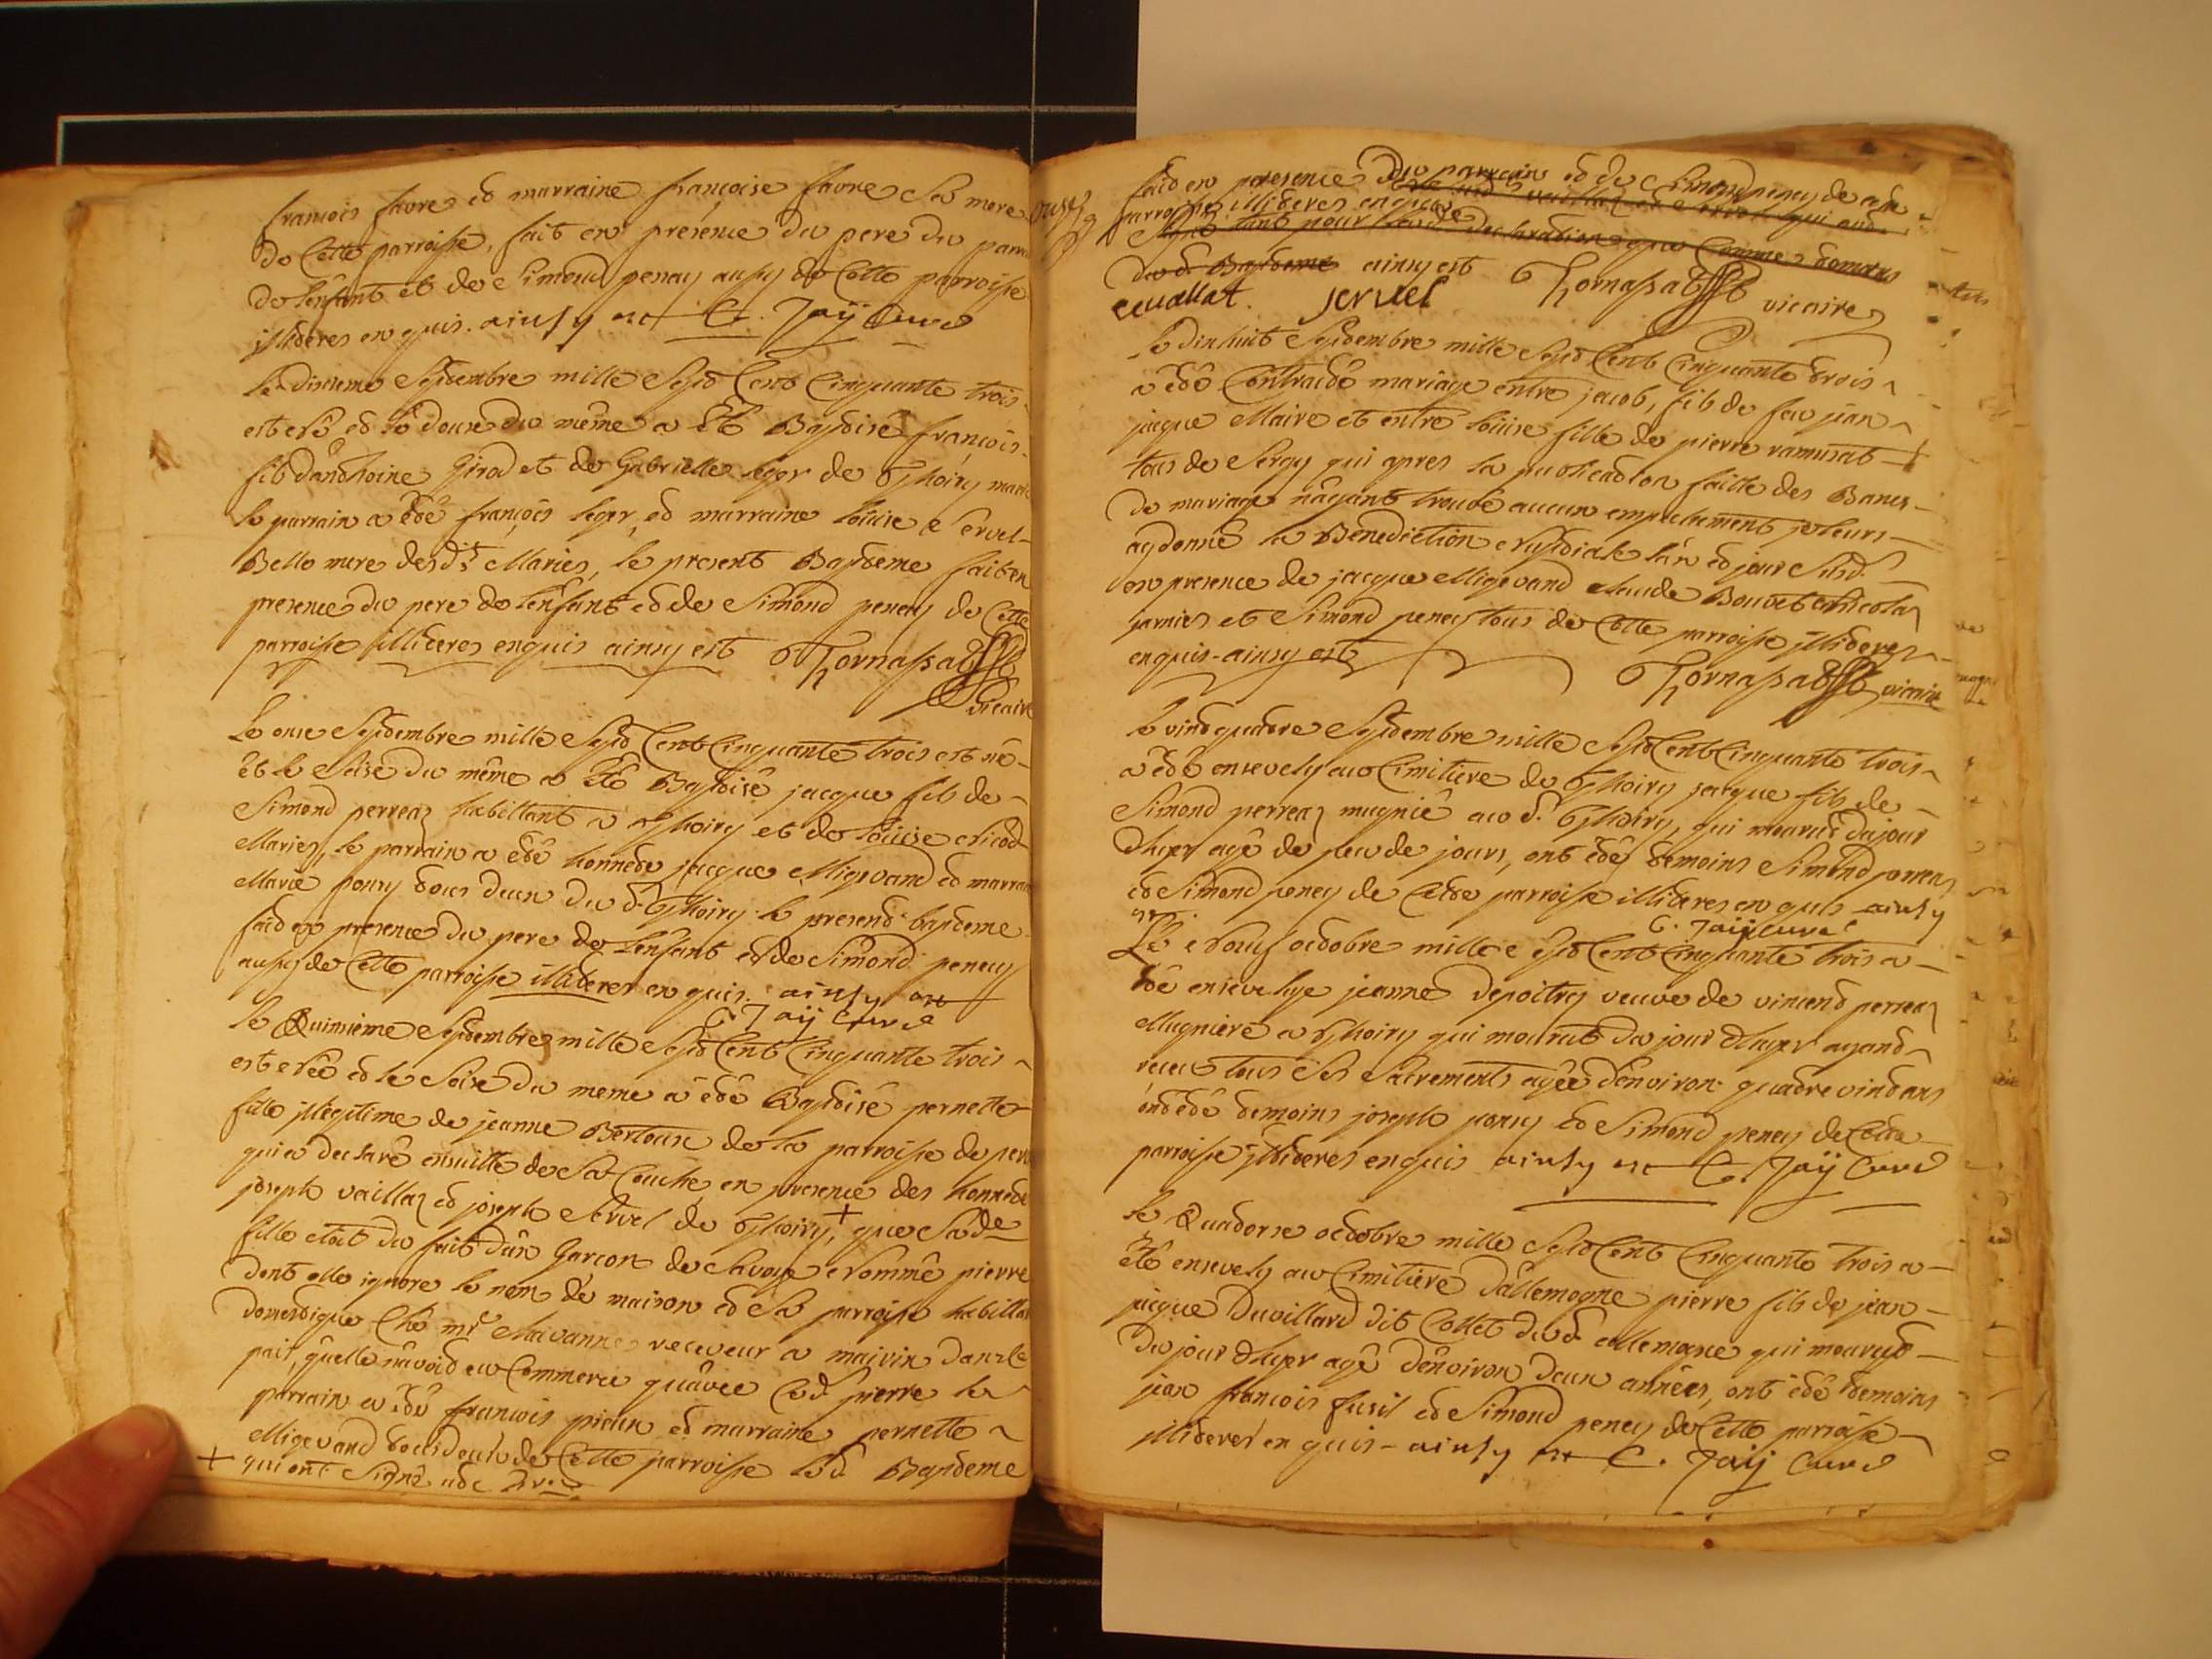 francois favre et marraine françoise favre sa mere
de cette parroisse, fait en présence du pere du
de lenfant et de Simond peney aussy de cette parroisse
illiteres enquis. ainsy est C. Jaÿ Curé
Le dixieme Septembre mille Sept Cent Cinquante trois
est né et le douze du même a été Baptisé françois
fils danthoine Girod et de Gabrielle leger de Thoiry
le parrain a été françois leger et marraine loüise Servel
Belle mere desdts Mariés, le present Baptême fait en
presence du pere de lenfant et de Simond peney de Cette
parroisse illiteres enquis ainsy est Thornassat
vicaire
Le onze Septembre mille Sept Cent Cinquante trois est né
et le Seise du même a été Baptisé jacque fils de
Simond perreaz habittant a Thoiry et de loüise nicod
Mariés, le parrain a été honnete jacque Migevand et
Marie poncy tous deux du d. Thoiry le present baptême
fait en presence du pere de lenfant et de Simond peney
aussy de Cette parroisse illiteres enquis. ainsy est
C. Jaÿ Curé
le Quinsieme Septembre mille Sept Cent Cinquante trois
est née et le Seise du meme a été Baptisé pernette
fille illegitime de jeanne Bertoux de la parroisse de
qui a declaré ensuitte de Sa Couche en presence des
joseph vaillaz et joseph Servel de Thoiry, + que Sade
fille etoit du fait dun Garcon de Savoye nommé pierre
dont elle ignore le nom de maison et Sa parroisse
domestique Ché mr Chavanne receveur a mairin dans le
pais, quelle navoit eu Commerce quavec led. pierre le
parrain a été francois picux et marraine pernette
Migevand tous deux de Cette parroisse led. Baptême
+ qui ont Signé
fait en presence du parrain et de Simond peney de cette
parroisse illiteres enquis
Signé tant pour declaration que Comme temoins
du d. Baptême ainsy est Thornassat vicaire
vuallat. servel
Le dixhuit Septembre mille Sept Cent Cinquante trois
a été Contracté mariage entre jacob, fils de feu jean
jacque Maire et entre loüise fille de pierre ramusat
tous de Sergy qui apres la publication faitte des Bancs
de mariage nayant trouvé aucun empechement je leurs
ay donné la Benediction nuptiale lan et jour Susd.
en presence de jacque Migevand claude Bouvet nicolaz
jarnier et Simond peney tous de Cette parroisse illiteres
enquis ainsy est Thornassat vicaire
le vindquatre Septembre mille Sept Cent Cinquante trois
a été ensevely au Cimitiere de Thoiry jacque fils de
Simond perreaz mugnié au d. Thoiry, qui mourut du jour
dhyer agé de peu de jours, ont été temoins Simond perreaz
et Simond peney de Cette parroisse illiteres enquis ainsy
est. C. Jaÿ Curé
Le octobre mille Sept Cent Cinquante trois a
été ensevelye jeanne Depoitry veuve de vincend perreaz
Mugniere a Thoiry qui mourut du jour dhyer ayand
receut tous Ses Sacrements agée denviron quadre vind ans
ond été temoins joseph poncy et Simond peney de Cette
parroisse illiteres enquis ainsy est C. Jaÿ Curé
le Quadorze octobre mille Sept Cent Cinquante trois a
été ensevely au Cimitiere dallemogne pierre fils de jean
jacque Duvillard dit Collet du d. allemogne qui mourut
du jour dhyer agé denviron deux années, ont été temoins
jean francois fusil et Simond peney de Cette parroisse
illiteres enquis ainsy est C. Jaÿ Curé